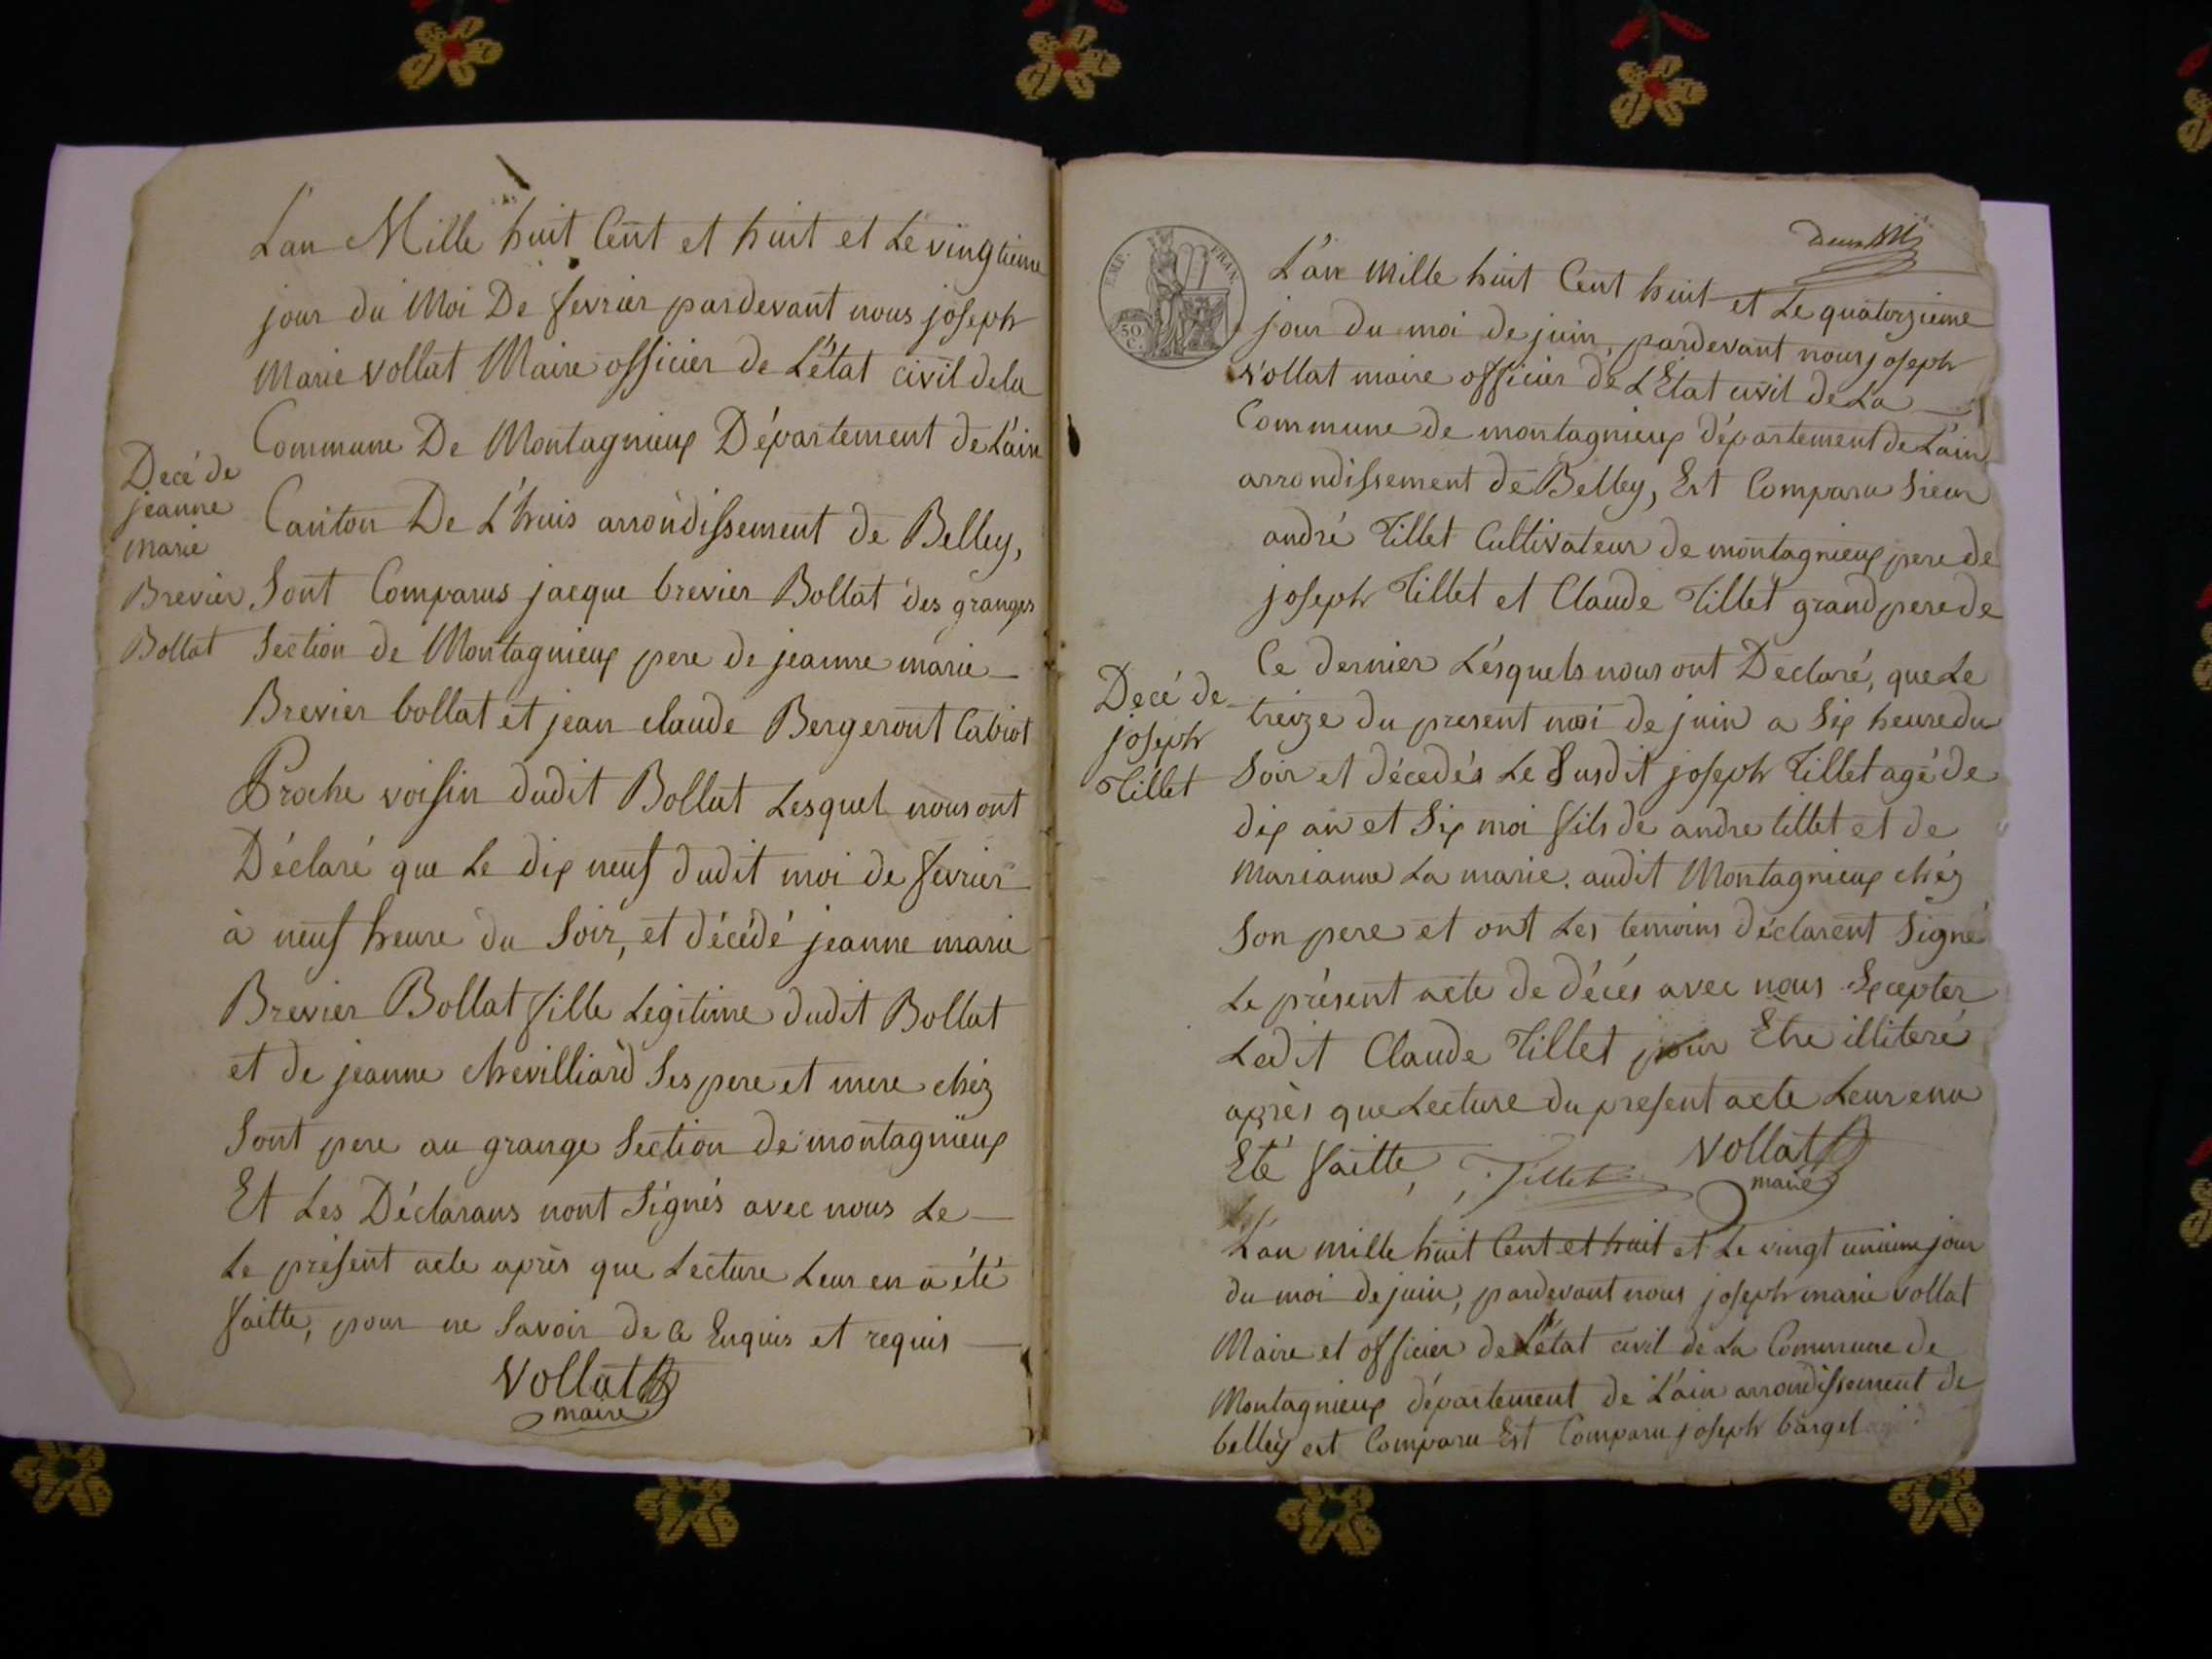 L'an Mille huit Cent et huit et Le vingtieme
jour du Moi De fevrier pardevant nous joseph
Marie Vollat Maire officier de L'état civil de la
Commune De Montagnieux Département de L'ain
Canton De L'huis arrondissement de Belley,
Sont Comparus jacque brevier Bollat des granges
Section de Montagnieux pere de jeanne marie
Brevier bollat et jean claude Bergeront Cabiot
Proche voisin dudit Bollat Lesquel nous ont
Déclaré que Le dix neuf dudit moi de fevrier
à neuf heure du Soir, et décédé jeanne marie
Brevier Bollat fille Legitime dudit Bollat
et de jeanne chevilliard Ses pere et mere chéz
Sont pere au grange Section de montagnieux
Et Les Déclarans nont Signés avec nous Le
Le présent acte après que Lecture Leur en a été
faitte, pour ne Savoir de ce Enquis et requis
Vollat
maire
Decé de
jeanne
marie
Brevier
Bollat
EMP. FRAN.
50
C.
deux
L'an Mille huit Cent huit et Le quatorzieme
jour du moi de juin, pardevant nous joseph
Vollat maire officier de L'Etat civil de La
Commune de montagnieux département de L'ain
arrondissement de Belley, Est Comparu Sieur
andré Tillet Cultivateur de montagnieux pere de
joseph Tillet et Claude Tillet grand pere de
Ce dernier Lesquels nous ont Déclaré, que Le
treize du present moi de juin a Six heure du
Soir et décedés Le Susdit joseph Tillet agé de
dix an et Six moi fils de andre tillet et de
Marianne La marie. audit Montagnieux chéz
Son pere et ont Les temoins déclarent Signé
Le présent acte de décés avec nous Excepter
Ledit Claude Tillet pour Etre illiteré
après que Lecture du present acte Leur en a
Eté faitte, Tillet Vollat
maire
Decé de
joseph
Tillet
L'an mille huit Cent et huit et Le vingt unieme jour
du moi de juin, pardevant nous joseph marie Vollat
Maire et officier de L'état civil de La Commune de
Montagnieux département de L'ain arrondissement de
belley est Comparu Est Comparu joseph barget